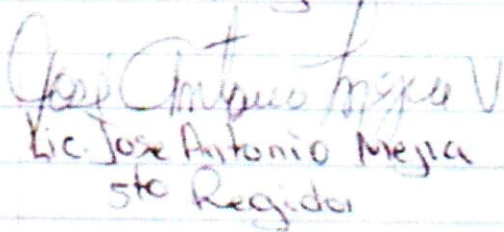 José Antonio Mejia V
Lic. Jose Antonio Mejia
5to Regidor